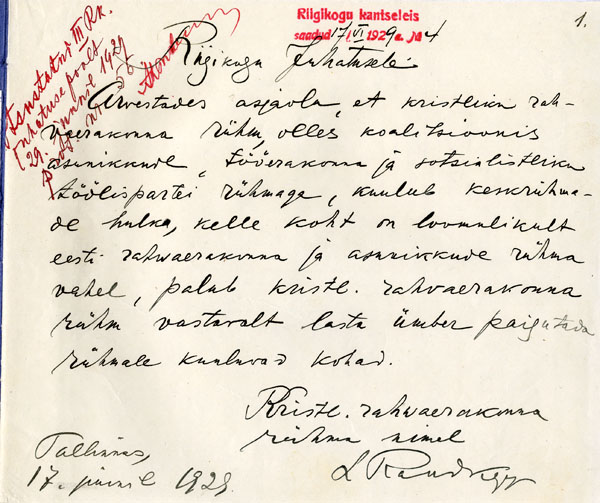 1.
Riigikogu kantseleis
saadud 17 VI 1929 a. № 4
Tunnistatud III Rk.
juhatuse poolt
29. juunil 1929
Riigikogu Juhatusele.
Arvestades asjaolu, et kristliku rah-
vaerakonna rühm, olles koalitsioonis
asunikkude, tööerakonna ja sotsialistliku
töölispartei rühmaga, kuulub keskrühma-
de hulka, kelle koht on loomulikult
eesti rahwaerakonna ja asunikkude rühma
vahel, palub kristl. rahvaerakonna
rühm vastavalt lasta ümber paigutada
rühmale kuuluvad kohad.
Kristl. rahwaerakonna
rühma nimel
L Raudkepp
Tallinnas,
17. juunil 1929